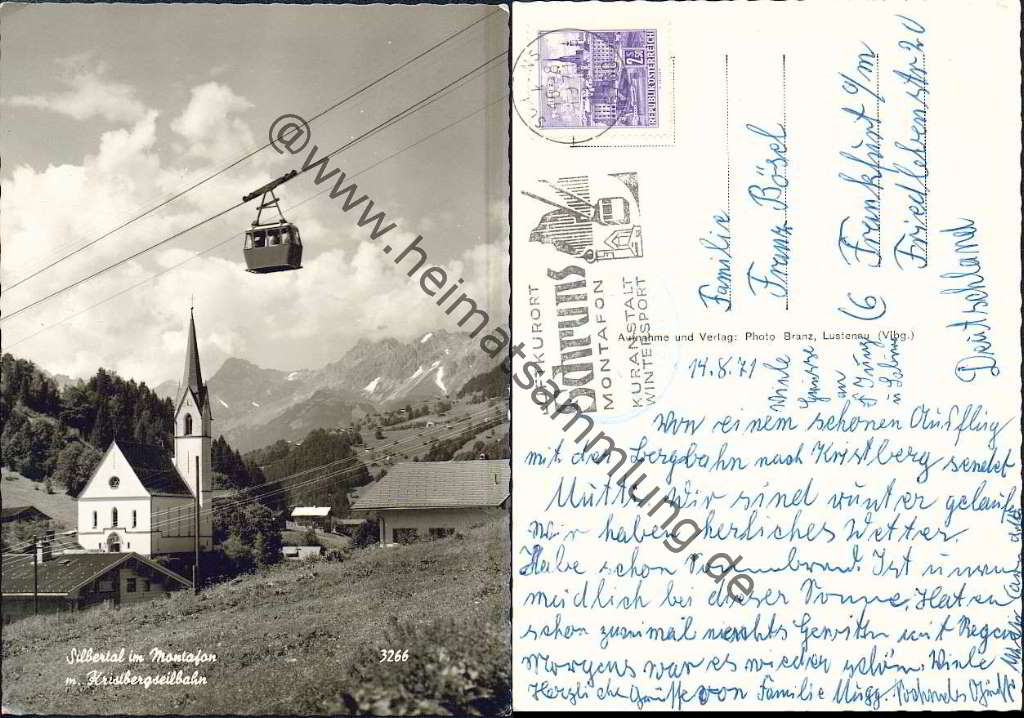 Silbertal im Montafon
m. Kristbergseilbahn
3266
@www.heimatsammlung.de
REPUBLIK ÖSTERREICH
HÖHENKURORT
Schruns
MONTAFON
KURANSTALT
WINTERSPORT
Aufnahme und Verlag: Photo Branz, Lustenau (Vlbg.)
Familie
Franz Bösel
6 Frankfurt a/m
Friedlebenstr 20
Deutschland
14.8.71
Viele
Grüsse
an
u
Von einem schönen Ausflug
mit der Bergbahn nach Kristberg sendet
Mutti. Wir sind runter gelaufen
Wir haben herliches Wetter.
Habe schon Sonnenbrand. Ist unver
meidlich bei dieser Sonne. Haten
schon zweimal nachts Gewitter mit Regen
Morgens war es wieder schön. Viele
Herzliche Grüsse von Familie